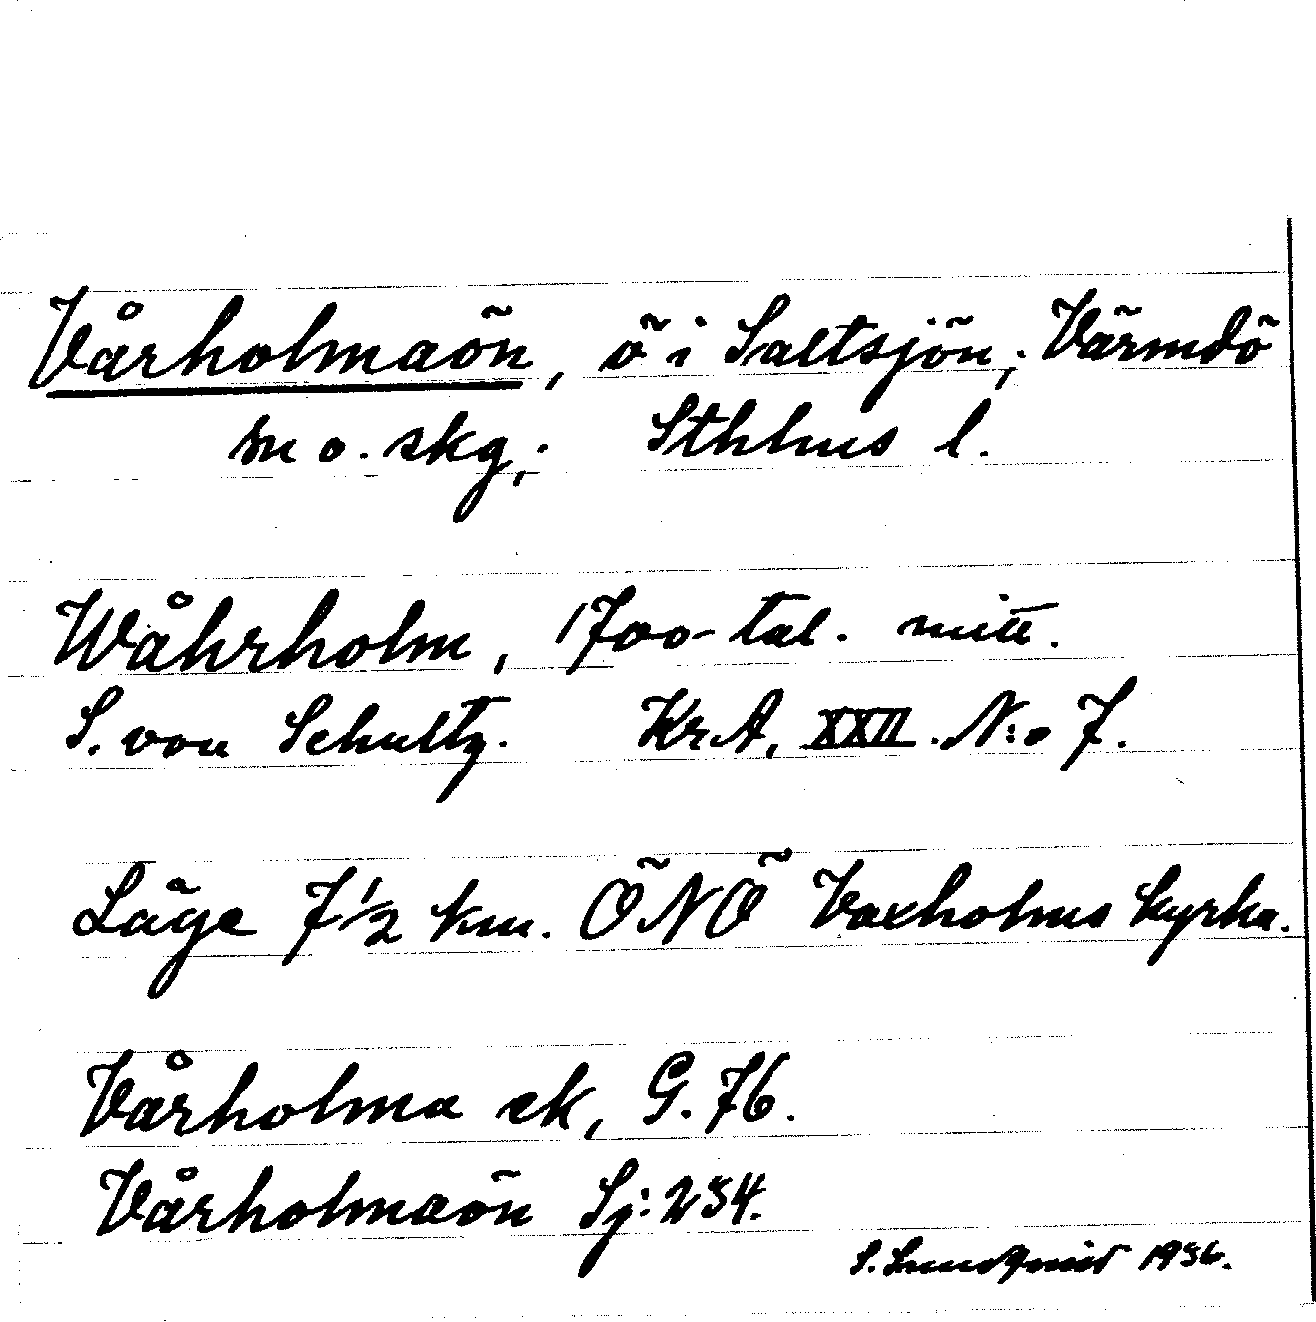 Vårholmaön, ö i Saltsjön; Värmdö
sn o. skg; Sthlms l.
Wåhrholm, 1700-tal. mitt.
S. von Schultz. KrA, XXII. N:o 7.
Läge 7 1/2 km. ÖNÖ Vaxholms kyrka.
Vårholma ek, G. 76.
Vårholmaön Sj: 234.
S. Lundqvist 1936.